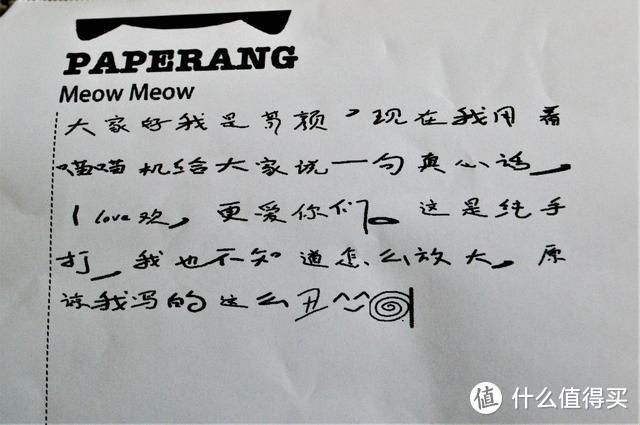 PAPERANG
Meow Meow
大家好我是蒡颜,现在我用着
喵喵机给大家说一句真心话,
I love 欢,更爱你们。这是纯手
打,我也不知道怎么放大,原
谅我写的这么丑^^
值 什么值得买